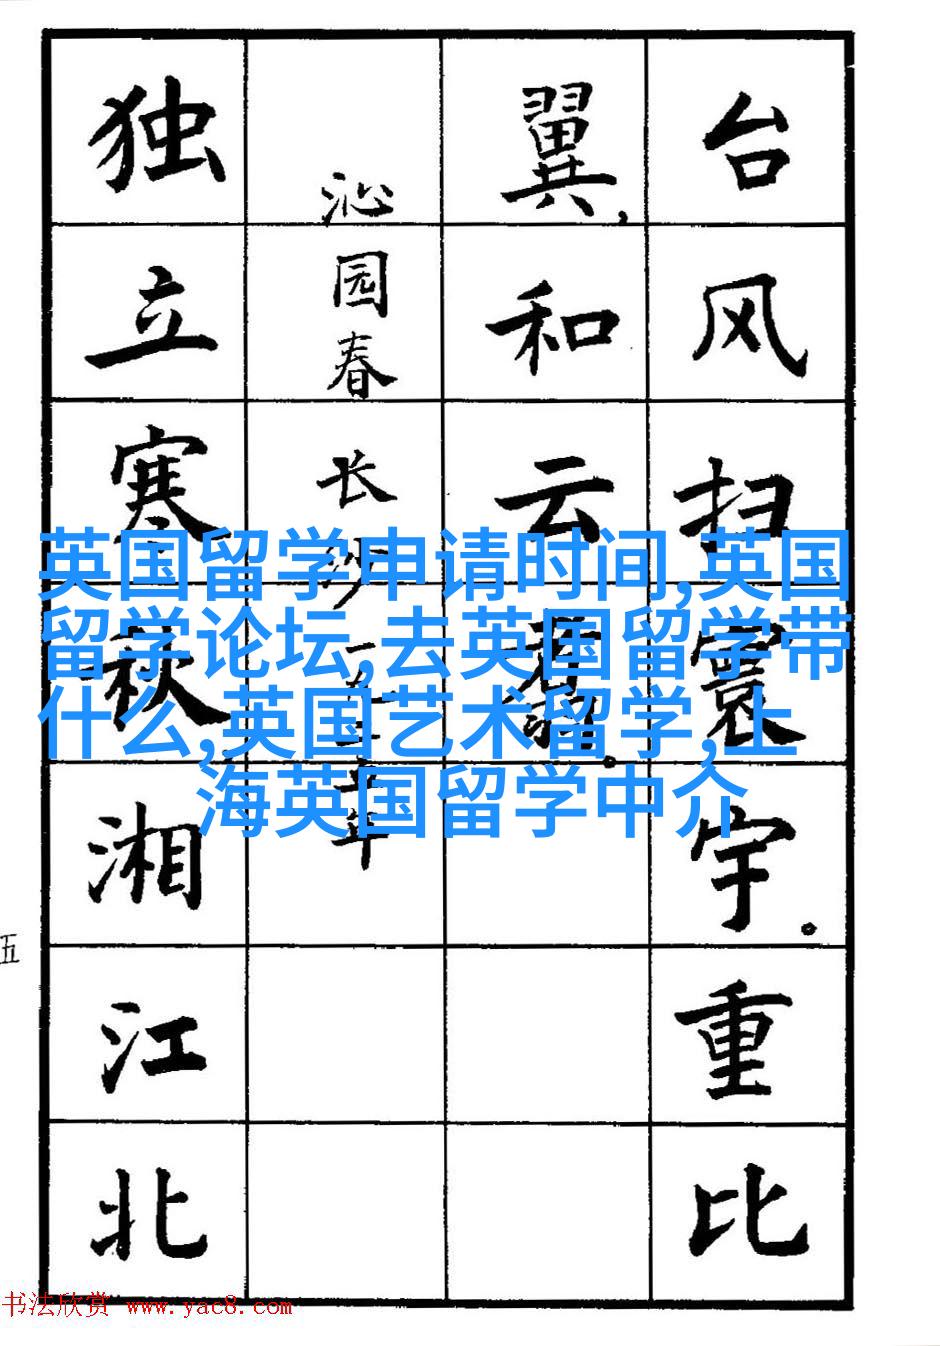 台风扫寰宇。重比
翼,和云
沁园春 长沙 一九二五年
独立寒秋,湘江北
五
英国留学申请时间,英国
留学论坛,去英国留学带
什么,英国艺术留学,上
海英国留学中介
书法欣赏 www.yac8.com